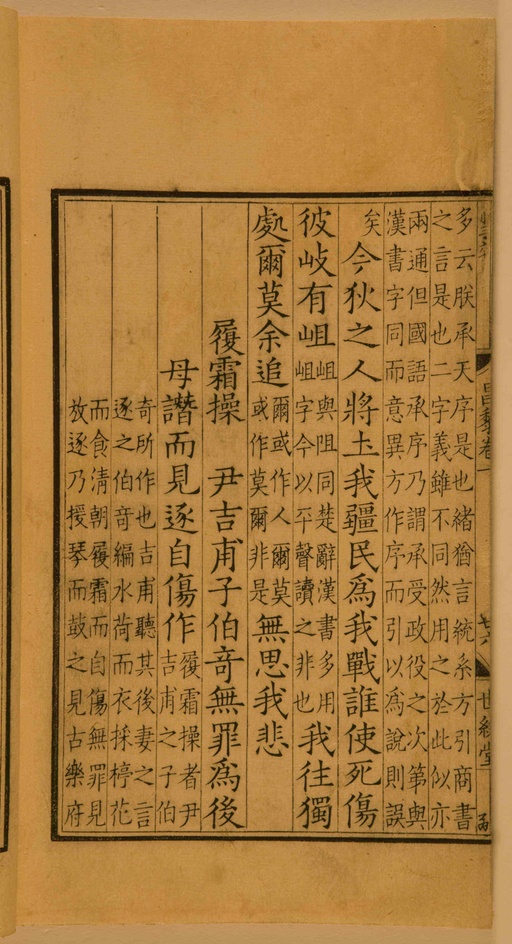 多云朕承天序是也緒猶言統系方引商書
之言是也二字義雖不同然用之於此似亦
兩通但國語承序乃謂承受政役之次第與
漢書字同而意異方作序而引以為說則誤
矣
今狄之人將土我疆民爲我戰誰使死傷
彼岐有岨
岨與阻同楚辭漢書多用
岨字今以平聲讀之非也
我往獨
處爾莫余追
爾或作人爾莫
或作莫爾非是
無思我悲
履霜操 尹吉甫子伯奇無罪爲後
母譖而見逐自傷作
履霜操者尹
吉甫之子伯
奇所作也吉甫聽其後妻之言
逐之伯奇編水荷而衣採楟花
而食清朝履霜而自傷無罪見
放逐乃援琴而鼓之見古樂府
昌黎卷一
廿六
世綵堂